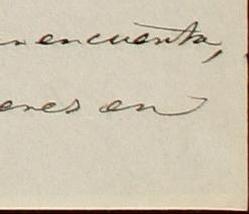 encuentra,
eres en